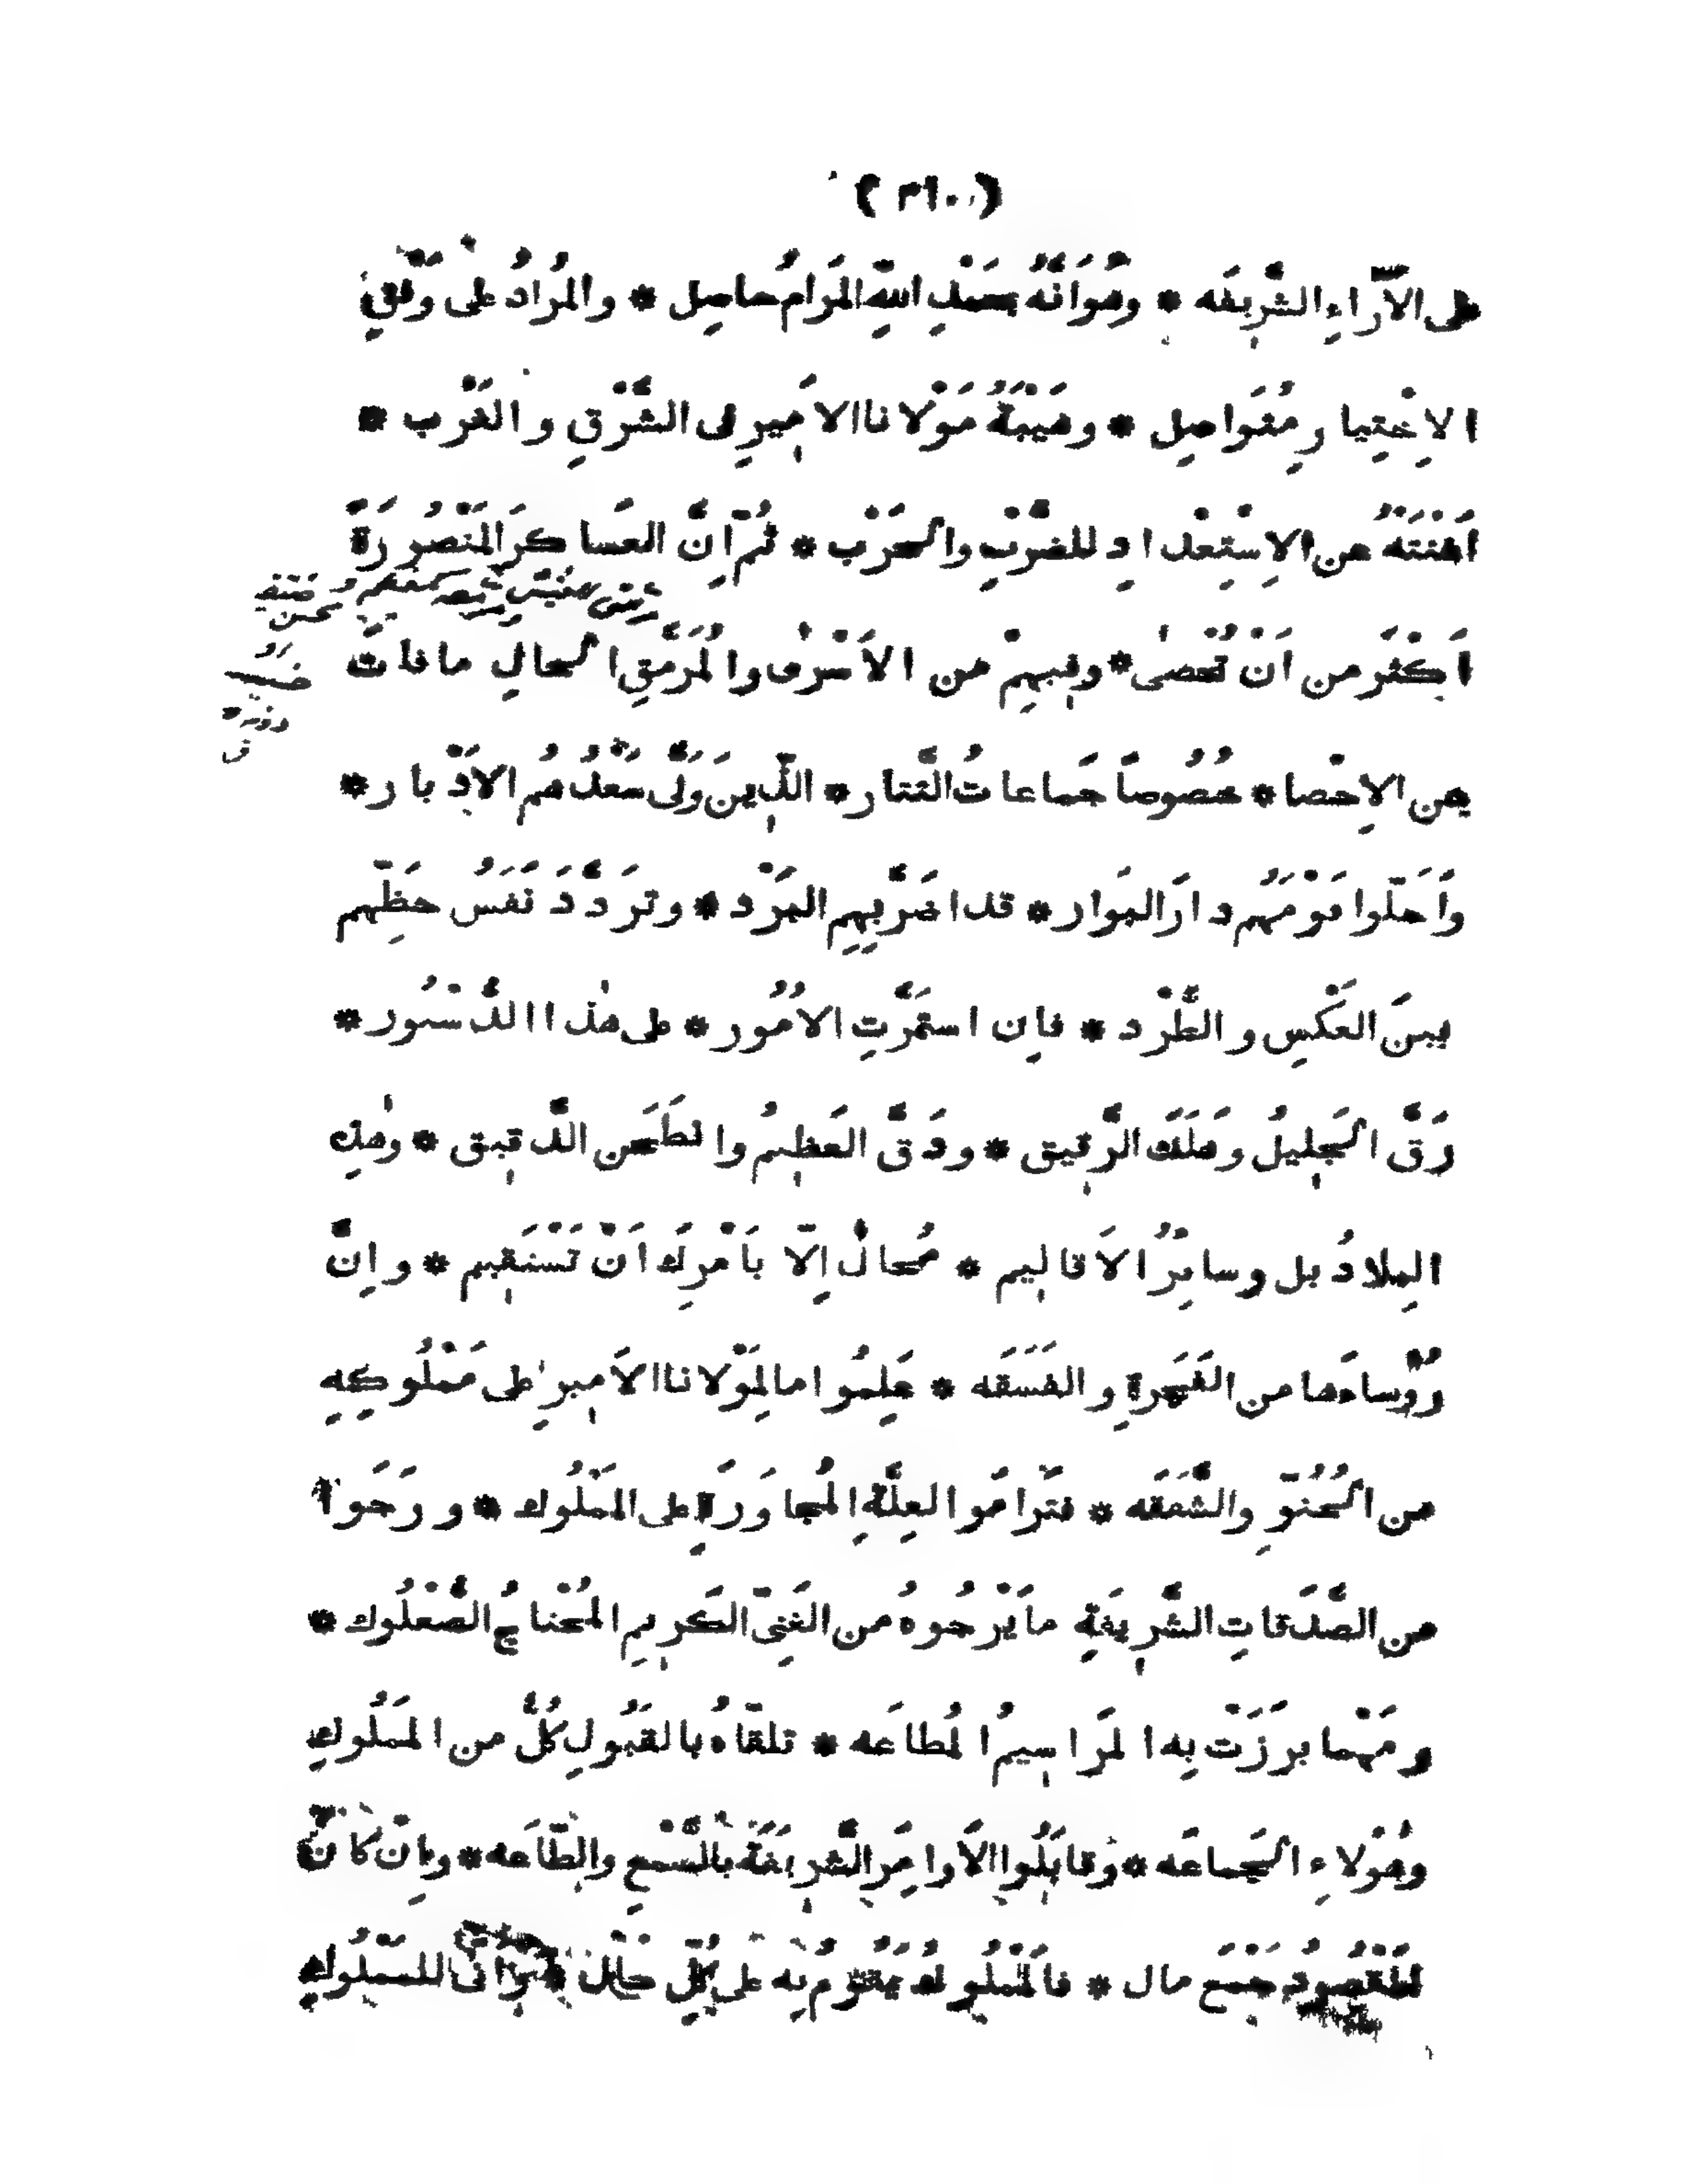 على الآرَاءِ الشَّرِيفَه * وهُوَ اَنَّهُ بِحَمْدِ اللهِ المَرَامُ حاصِل * والمُرَادُ على وَفْقِ
الاِخْتِيارِ مُتَوَاصِل * وهَيْبَةُ مَوْلانا الاَمِيرِ فى الشَّرْقِ والغَرْب *
اَغْنَتْهُ عن الاِسْتِعْدادِ للضَّرْبِ والحَرْب * ثُمَّ اِنَّ العَساكرَ المَنْصُورَةَ
اَكْثَرُ من اَنْ تُحصٰى * وفيهِمْ من الاَسْرٰى والمُرَمَّقِ الحالِ ما فاتَ
عن الاِحْصا * خُصُوصاً جَماعاتُ التَّتار * الَّذِينَ وَلَّى سَعْدُهُم الاَدْبار *
وَاَحَلّوا قَوْمَهُم دارَ البَوار * قد اضَرَّبِهِم البَرْد * وتَرَدَّدَ نَفَسُ حَظِّهم
بينَ العَكْسِ والطَّرْد * فاِن استَمَرَّتِ الاُمُور * على هٰذا الدُّسْتور *
رَقَّ الجَلِيلُ وهَلَكَ الرَّقيق * ودَقَّ العَظِيمُ وانطَحَن الدَّقِيق * وهٰذِه
البِلادُ بل وسايِرُ الاَقاليم * مُحالٌ اِلّا بِاَمْرِكَ اَنْ تَسْتَقيم * واِنَّ
رُؤُساءَها من الفَجَرةِ والفَسَقَه * عَلِمُوا ما لِمَوْلانا الاَمِيرِ على مَمْلُوكِهِ
من الحُنُوِّ والشَّفَقَه * فتَرامَوا لعِلَّةِ المُجاوَرَةِ على المَمْلُوك * ورَجَوا
من الصَّدَقاتِ الشَّرِيفَةِ ما يَرْجُوهُ من الغَنِىّ الكَرِيمِ المُحْتاجُ الصُّعْلُوك *
ومَهْما بَرَزَتْ بِه المَرَاسِيمُ المُطاعَه * تلقّاهُ بالقَبُولِ كُلٌّ من المَمْلُوكِ
وهٰؤُلاءِ الجَماعَه * وقابَلُوا الاَوامِرَ الشَّرِيفَةَ بالسَّمْعِ والطّاعَه * واِنْ كانَ
المَقْصُودُ جَمْعَ مال * فالمَمْلُوكُ يَقُومُ بِه على كُلِّ حال * لِلمَمْلُوكِ